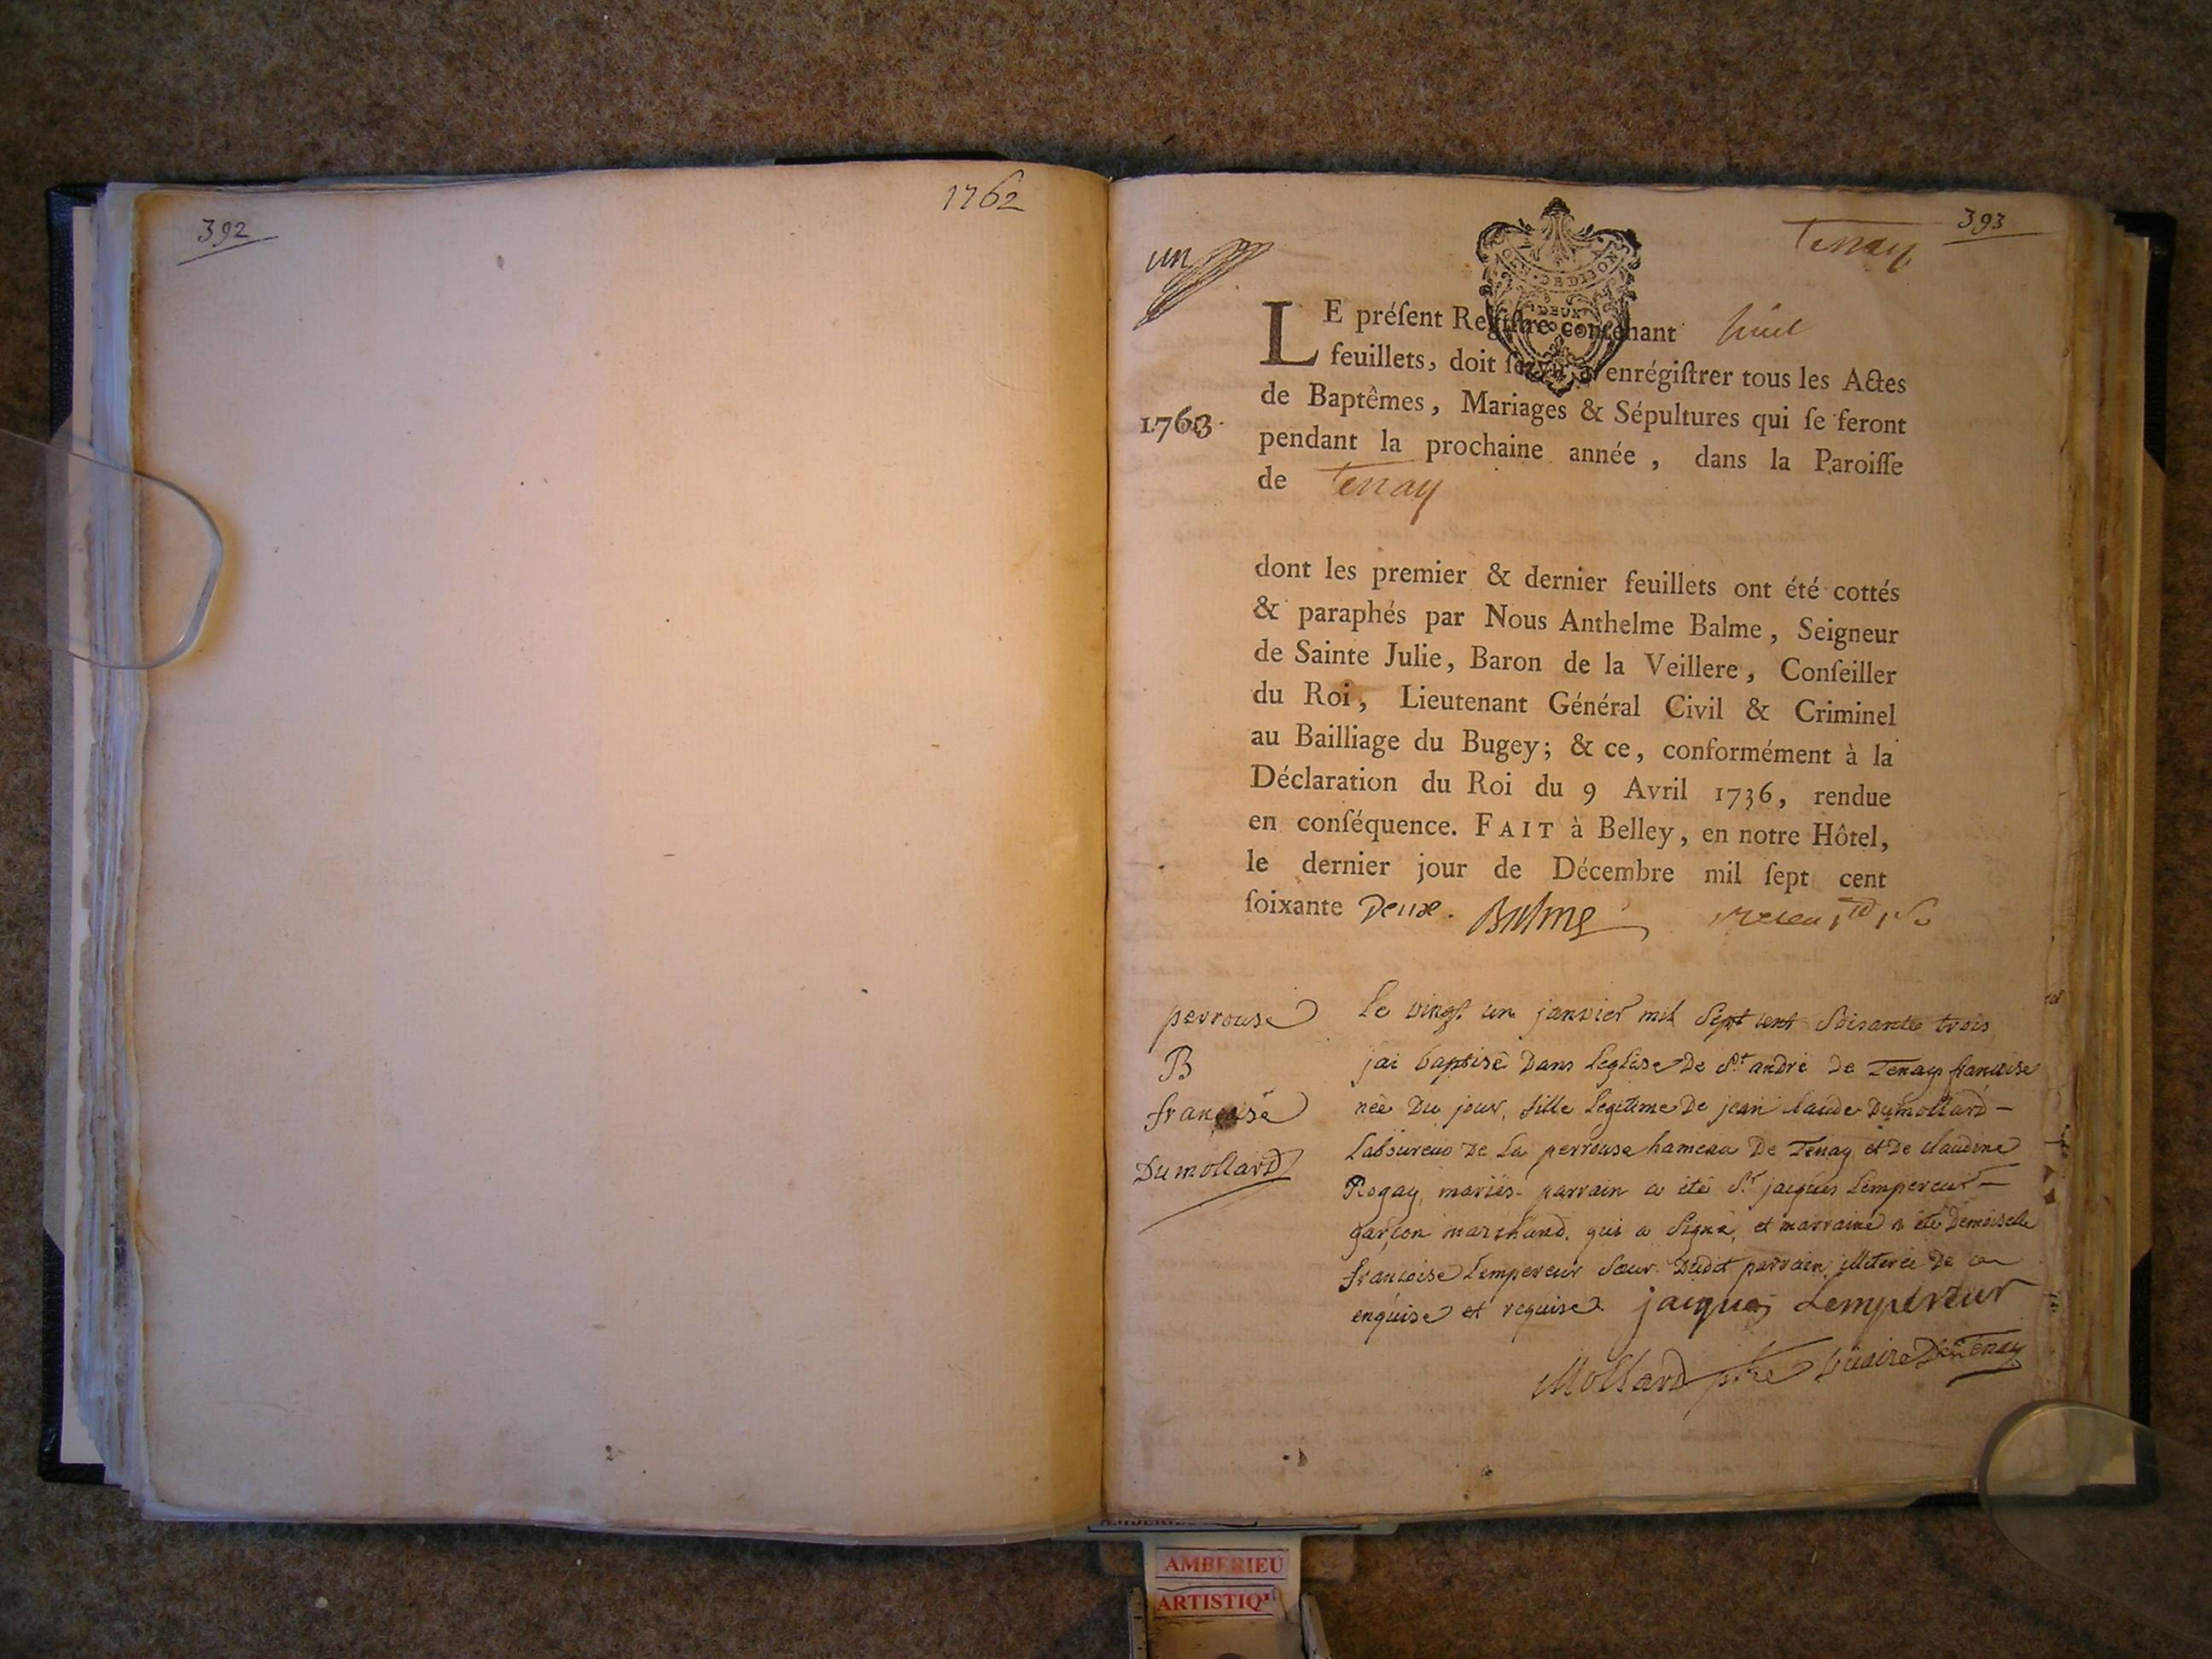 392
1762
un
Tenay
393
GEN. DE DIJON
DEUX
LE préſent Regiſtre contenant huit
feuillets, doit ſervir à enrégiſtrer tous les Actes
de Baptêmes, Mariages & Sépultures qui ſe feront
1763
pendant la prochaine année, dans la Paroiſſe
de Tenay
dont les premier & dernier feuillets ont été cottés
& paraphés par Nous Anthelme Balme, Seigneur
de Sainte Julie, Baron de la Veillere, Conſeiller
du Roi, Lieutenant Général Civil & Criminel
au Bailliage du Bugey; & ce, conformément à la
Déclaration du Roi du 9 Avril 1736, rendue
en conſéquence. FAIT à Belley, en notre Hôtel,
le dernier jour de Décembre mil ſept cent
ſoixante Deux. Balme
perrouse
B
françoise
Dumollard
Le vingt un janvier mil Sept cent Soisante trois
jai baptisé Dans Leglise De St andré De Tenay francoise
née Du jour, fille Legitime De jean claude Dumollard
Laboureur De La perrouse hameau De Tenay et De claudine
Rogay, mariés. parrain a été Sr jacques Lempereur
garçon marchand. qui a Signé, et marraine a été Demoiselle
francoise Lempereur Sœur Dudit parrain, illiterée De ce
enquise et requise. jacques Lempereur
Mollard ptre vicaire De Tenay
AMBERIEU
ARTISTIQ